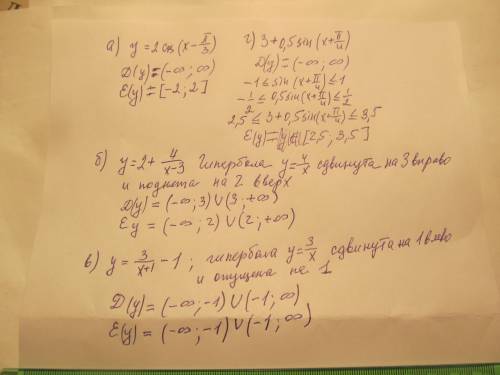 а) y = 2 cos(x - π/3)
D(y) = (-∞; ∞)
E(y) = [-2; 2]
г) 3 + 0,5 sin(x + π/4)
D(y) = (-∞; ∞)
-1 ≤ sin(x + π/4) ≤ 1
-1/2 ≤ 0,5 sin(x + π/4) ≤ 1/2
2,5 ≤ 3 + 0,5 sin(x + π/4) ≤ 3,5
E(y) = [2,5; 3,5]
б) y = 2 + 4/(x-3) Гипербола y = 4/x сдвинута на 3 вправо
и поднята на 2 вверх
D(y) = (-∞; 3) ∪ (3; +∞)
Ey = (-∞; 2) ∪ (2; +∞)
в) y = 3/(x+1) - 1; гипербола y = 3/x сдвинута на 1 влево
и опущена на 1
D(y) = (-∞; -1) ∪ (-1; ∞)
E(y) = (-∞; -1) ∪ (-1; ∞)